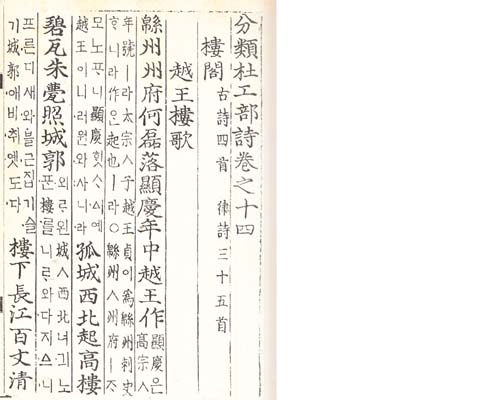 分類杜工部詩卷之十四
樓閣 古詩四首 律詩三十五首
越王樓歌
緜州州府何磊落顯慶年中越王作 顯慶은
高宗ㅅ
年號ㅣ라太宗ㅅ子越王貞이爲緜州刺史
ᄒᆞ니라作ᄋᆞᆫ起也ㅣ라○緜州ㅅ州府ㅣᄌᆞ
모노ᄑᆞ니顯慶ㅅᄒᆡᆺᄉᆞᅀᅵ예
越王이
孤城西北起高樓
碧瓦朱甍照城郭
외ᄅᆞ왼城ㅅ西北녀긔노
ᄑᆞᆫ樓ᄅᆞᆯ니ᄅᆞ와다지ᅀᅳ니
프른디새와블근집기슬
기城郭애비취옛도다
樓下長江百丈清